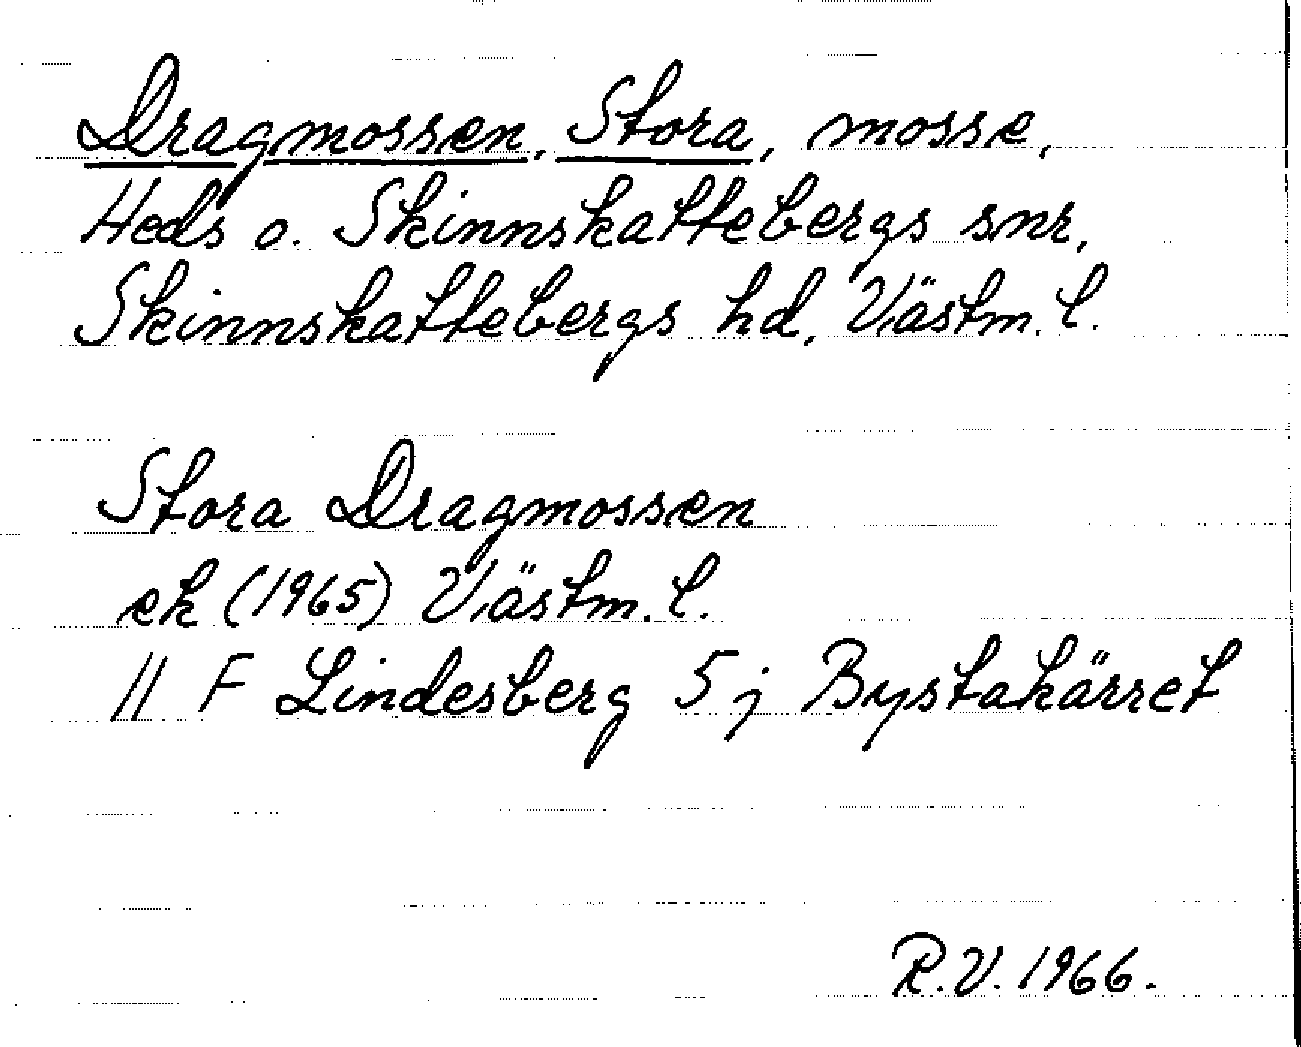 Dragmossen, Stora, mosse,
Heds o. Skinnskattebergs snr,
Skinnskattebergs hd, Västm. l.
Stora Dragmossen
ek (1965) Västm. l.
11 F Lindesberg 5 j Bystakärret
R.V. 1966.